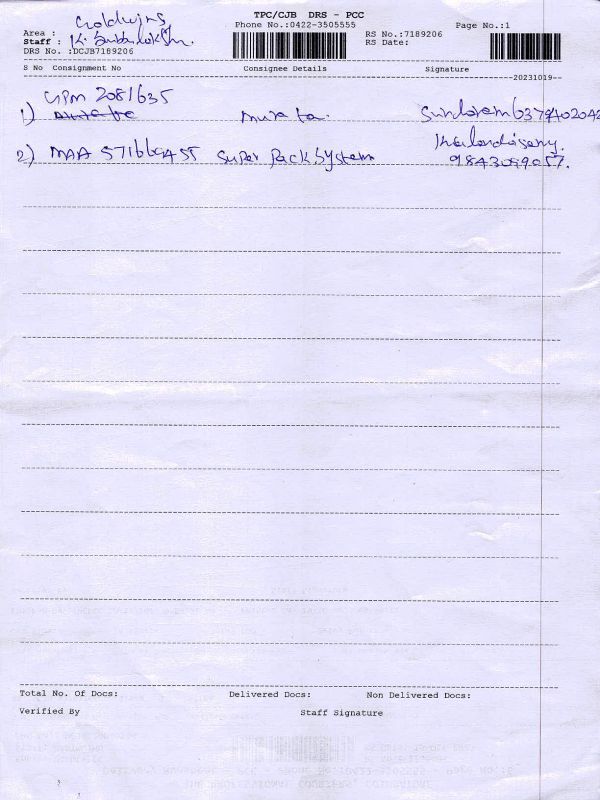 TPC/CJB DRS - PCC
Phone No.:0422-3505555
Page No.:1
Area : Goldwins
Staff : K. Subbulakshmi.
DRS No. :DCJB7189206
RS No.:7189206
RS Date:
S No Consignment No Consignee Details Signature
20231019
1) GPM 2081635 Murata. Sundaram 6379402042
2) MAA 571669455 Super Pack System
9843099057.
Total No. Of Docs: Delivered Docs: Non Delivered Docs:
Verified By Staff Signature